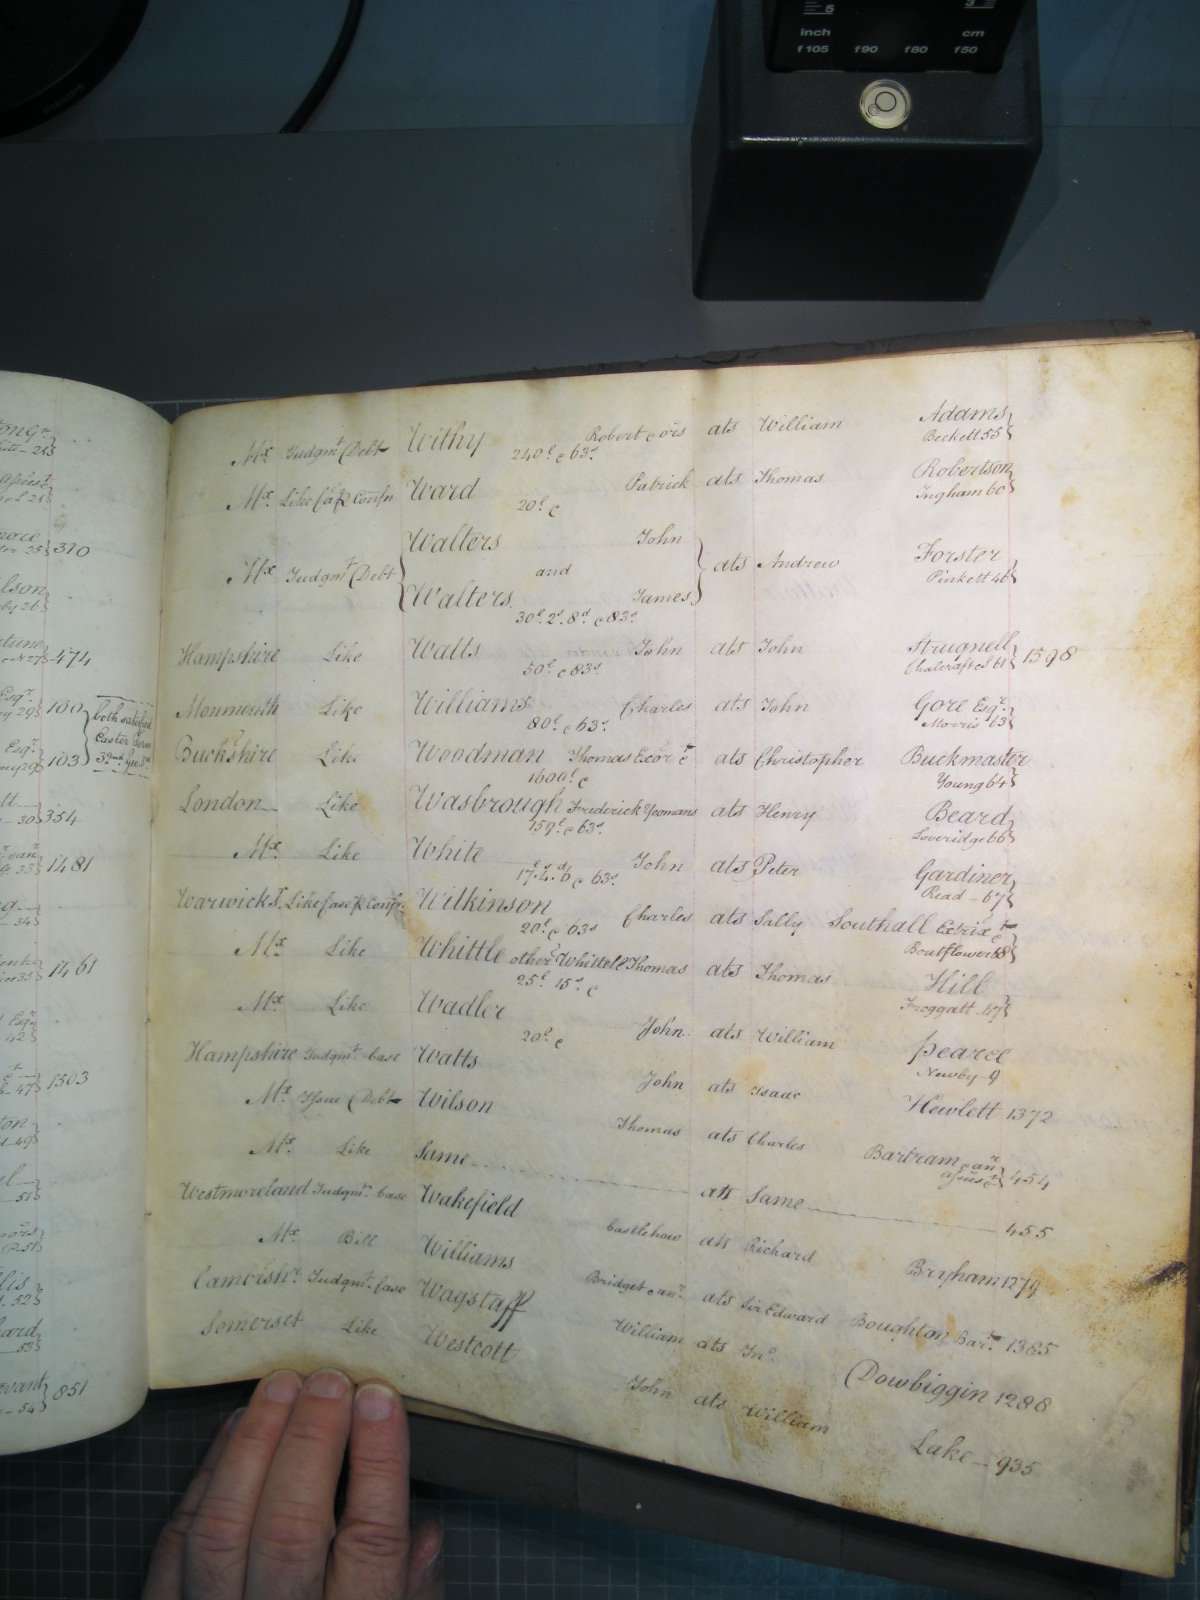 5
3
inch
cm
f105 f90 f80 f50
Mx Judgmt Debt Withy Robert & ors ats William Adams
240£ & 63s Beckett 55
Mx Like Case p Confn Ward Patrick ats Thomas Robertson
20£ & Ingham 60
Walters John
Mx Judgmt Debt and ats Andrew Forster
Pinkett 46
Walters James
30£ 2s 8d & 83s
Hampshire Like Watts John ats John Strugnell
50£ & 83s Chalcraft 61 1598
Monmouth Like Williams Charles ats John Gore Esqr.
80£ & 63s Morris 63
Buckshire Like Woodman Thomas Exor &c ats Christopher Buckmaster
1600£ & Young 64
London Like Wasbrough Frederick Yeomans ats Henry Beard
159£ & 63s Loveridge 66
Mx Like White John ats Peter Gardiner
17£ 4s 6d & 63s Read - 67
Warwicks. Like Case p Confn Wilkinson Charles ats Sally Southall Extrix &c
20£ & 63s Boutflower 68
Mx Like Whittle otherwise Whittell Thomas ats Thomas Hill
25£ 15s & Froggatt 47
Mx Like Wadler John ats William Pearce
20£ & Newby - 9
Hampshire Judgmt. Case Watts John ats Isaac Hewlett 1372
Mx Issue Debt Wilson Thomas ats Charles Bartram & anr
assees &c 454
Mx Like Same ats Same 455
Westmoreland Judgmt. Case Wakefield Castlehow ats Richard Bryham 1279
Mx Bill Williams Bridget & anr. ats Sir Edward Boughton Bart. 1385
Cambrish. Judgmt. Case Wagstaff William ats Jno. Dowbiggin 1288
Somerset Like Westcott John ats William Lake - 935
310
474
100
both satisfied
Easter Term
103
354
1481
1461
1303
851